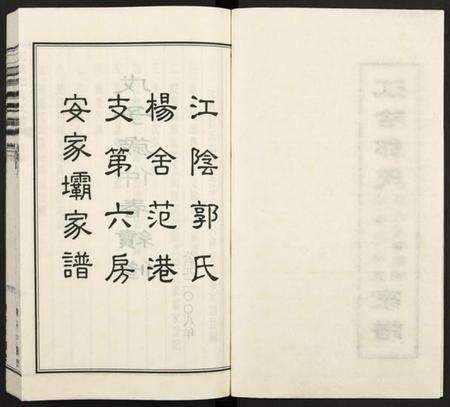 江陰郭氏
楊舍范港
支第六房
安家壩家譜